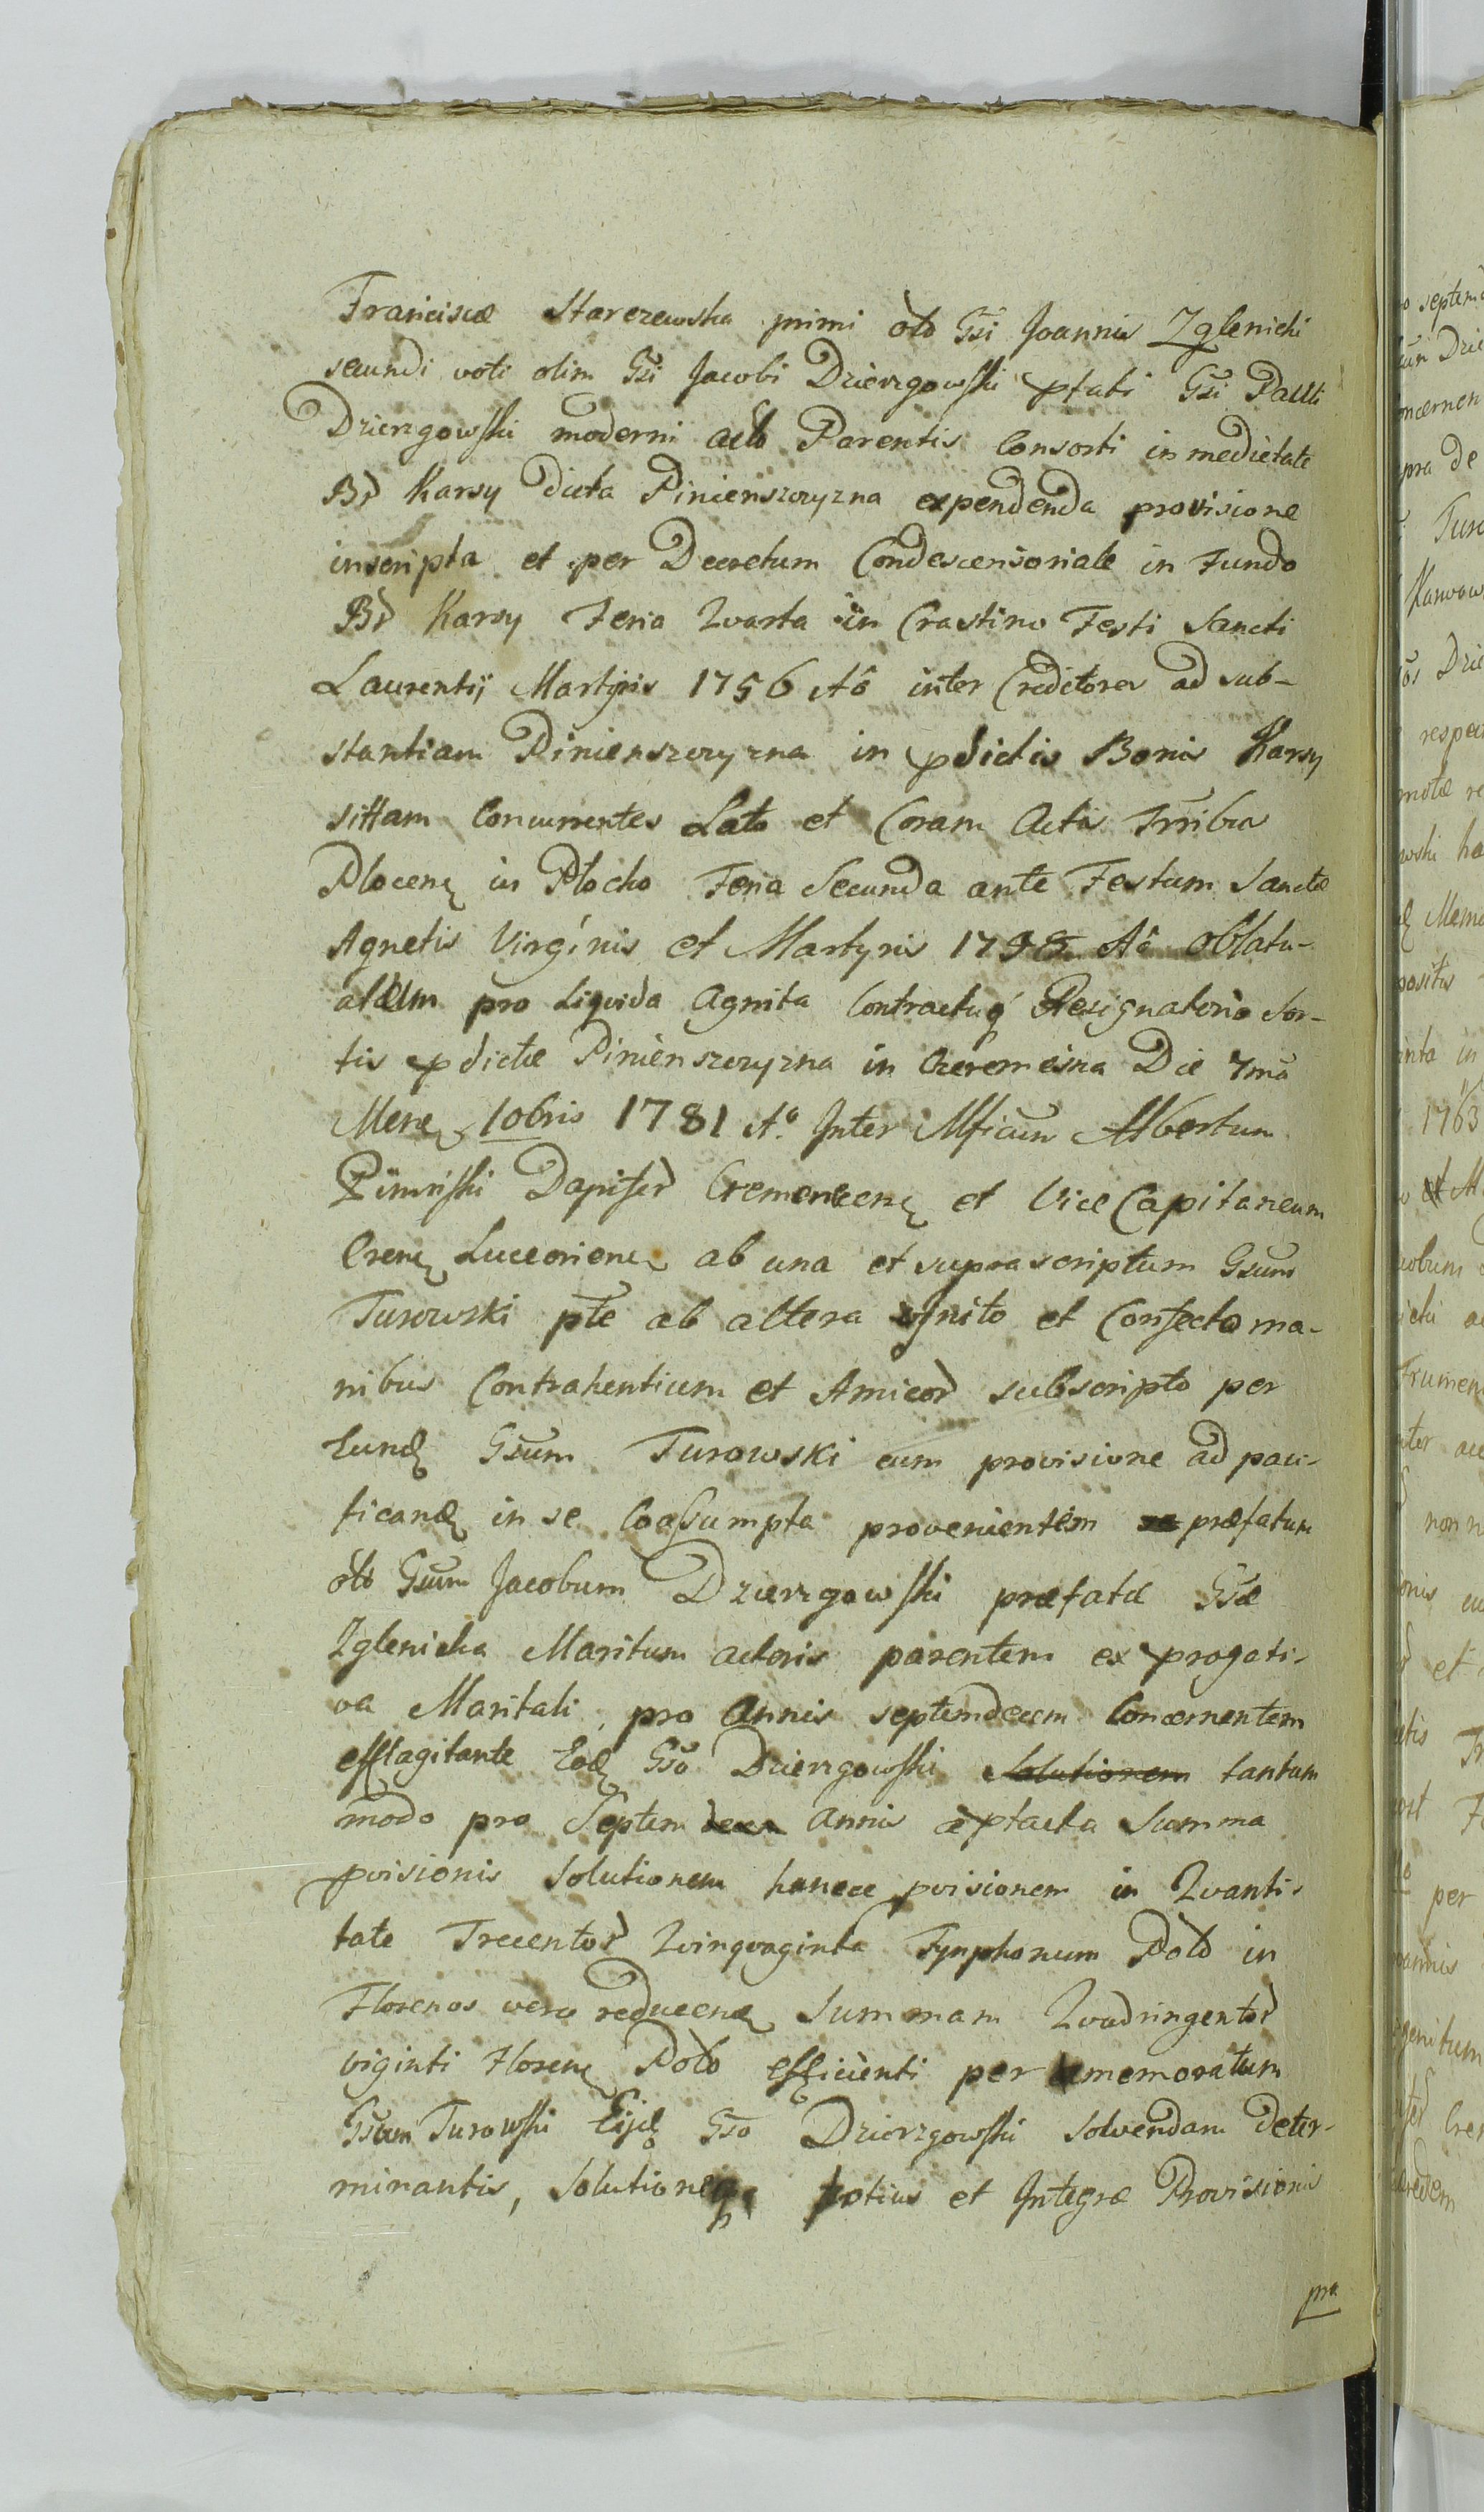 Franciscæ Starczewska primi olo Gsi Joannis Zglenicki
secundi voti olim Gsi Jacobi Dzierzgowski ptati Gsi Paulli
Dzierzgowski moderni actō Parentis Consorti in medietate
Br̄ Karsy dicta Pinienszczyzna expendenda provisione
inscripta et per Decretum Condescensoriale in Fundo
Br̄ Karsy Feria Quarta in Crastino Festi Sancti
Laurentij Martyris 1756 Aō inter Creditores ad sub-
stantiam Pinienszczyzna in pdictis Bonis Karsy
sittam Concurrentes Lato et Coram Actis Trribus
Plocenę in Płocko Feria Secunda ante Festum Sanctæ
Agnetis Virginis et Martyris Aō Oblatu-
pro Liquida Agnita Contractuq́ Resignatorio Sor-
tis pdictæ Pinienszczyzna in Die 7mā
Mensę 10bris 1781 Aō Inter Mficum Albertum
Pininski Dapiferō Cremenecenę et Vice Capitaneum
Crenę Luceorienę ab una et suprascriptum Gsum
Turowski pte ab altera inito et Confecto ma-
nibus Contrahentium et Amicor̄ subscripto per
Eundę Gsum Turowski cum provisione ad paci-
ficandę in se Coassumpta provenientem præfatum
olō Gsum Jacobum Dzierzgowski præfatæ Gsæ
Zglenicka Maritum actoris parentem ex progati-
va Maritali, pro Annis septemdecem Concernentem
efflagitante Eodę Gsō Dzierzgowski Solutionem tantum
modo pro Septem decem Annis a ptacta Summa
pvisionis Solutionem hancce pvisionem in Quanti-
tate Trecentor̄ Quinquaginta Tynphonum Polō in
Florenos vero reducendę Summam Quadringentor̄
viginti Florenę Polō efficienti per memoratum
Gsum Turowski Eijdę Gsō Dzierzgowski Solvendam deter-
minantis, Solutioneq, totius et Integræ Provisionis